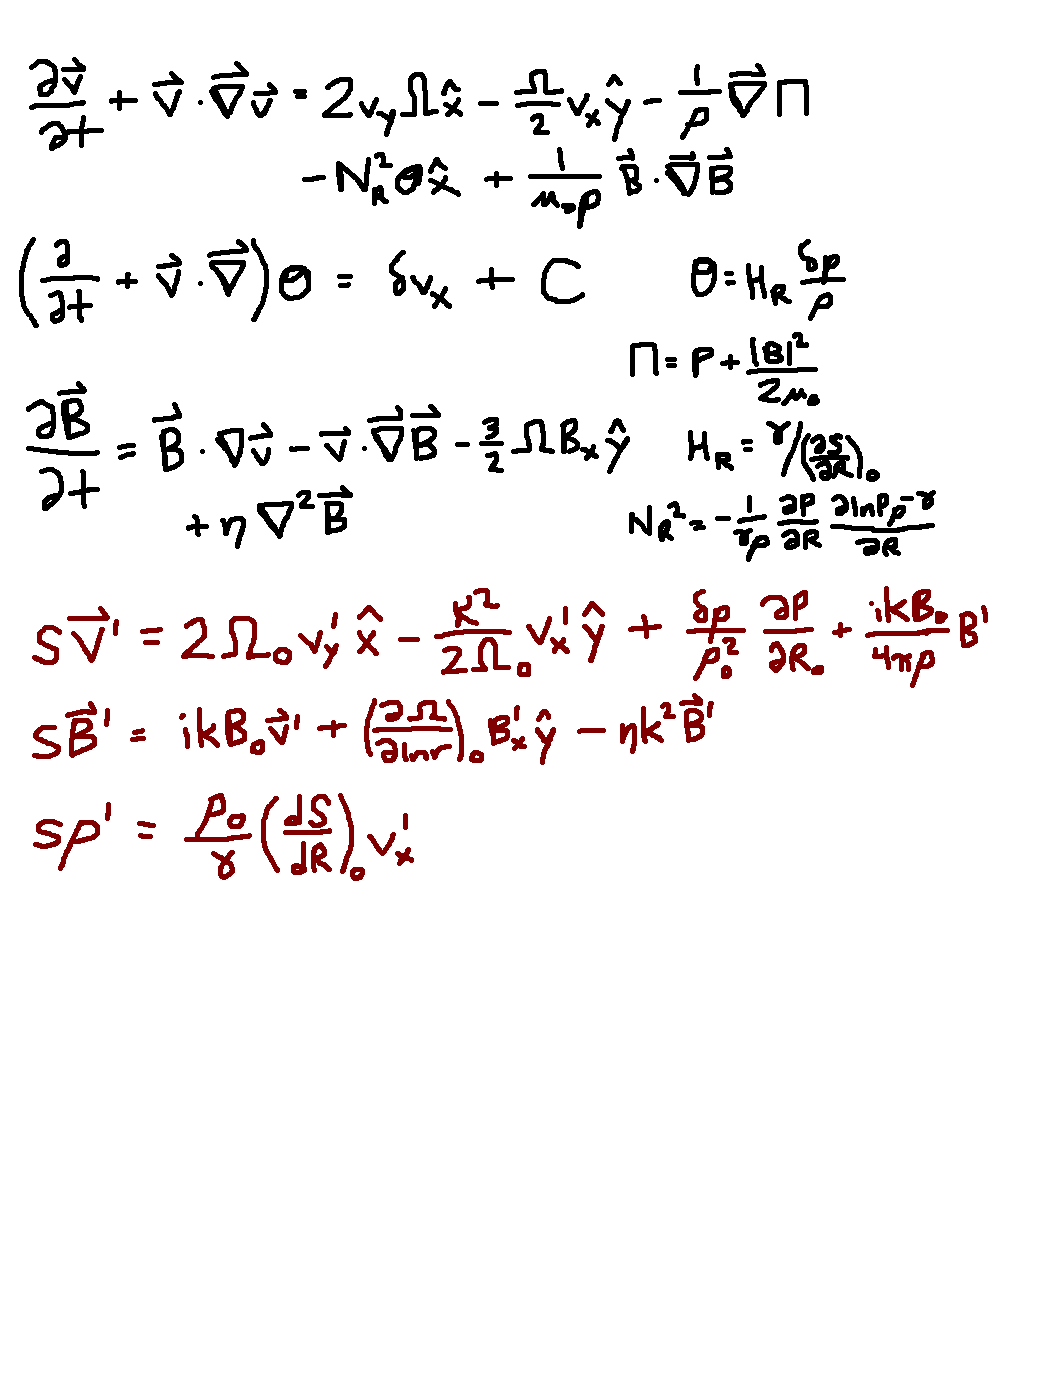 ∂v⃗/∂t + v⃗ · ∇⃗v⃗ = 2v_yΩx̂ - Ω/2 v_xŷ - 1/ρ ∇⃗Π
- N_R²θx̂ + 1/(μ₀ρ) B⃗ · ∇⃗B⃗
(∂/∂t + v⃗ · ∇⃗)θ = δv_x + C    θ = H_R δρ/ρ
Π = P + |B|²/(2μ₀)
∂B⃗/∂t = B⃗ · ∇v⃗ - v⃗ · ∇⃗B⃗ - 3/2 ΩB_xŷ    H_R = γ/(∂S/∂R)₀
+ η∇²B⃗    N_R² = - 1/(γρ) ∂P/∂R ∂lnPρ^-γ/∂R
sv⃗' = 2Ω₀v_y' x̂ - K²/(2Ω₀) v_x'ŷ + δρ/ρ₀² ∂P/∂R₀ + ikB₀/(4πρ) B'
sB⃗' = ikB₀v⃗' + (∂Ω/∂lnr)₀ B_x'ŷ - ηk²B⃗'
sρ' = ρ₀/γ (dS/dR)₀ v_x'